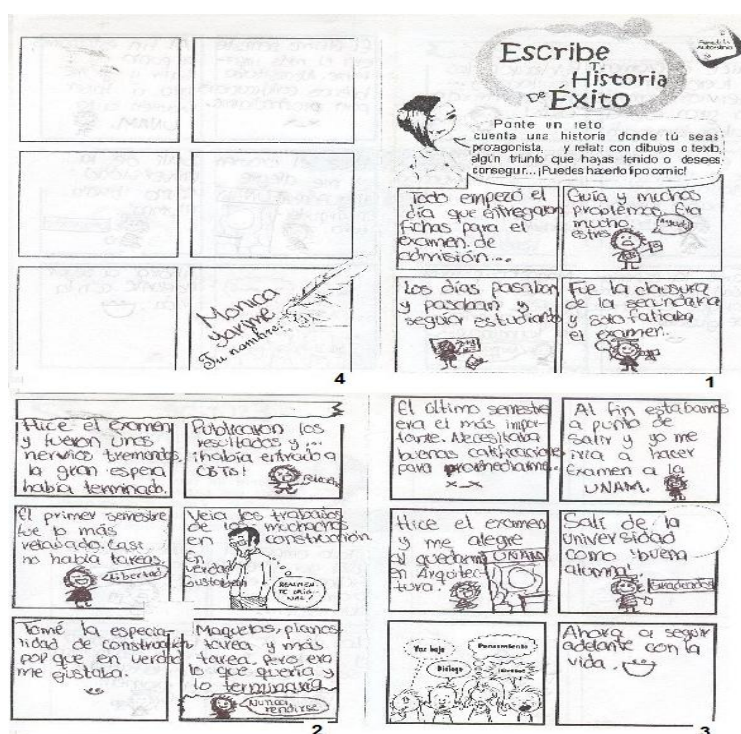 Escribe
Tu
Historia
De Éxito
Ponte un reto
cuenta una historia donde tú seas
protagonista, y relata con dibujos o texto,
algún triunfo que hayas tenido o desees
conseguir... ¡Puedes hacerlo tipo comic!
Todo empezó el
día que entregaron
fichas para el
examen de
admisión...
Guía y muchos
problemas. Era
mucho
estres
Los días pasaban
y pasaban y
seguía estudiando
Fue la clausura
de la secundaria
y solo faltaba
el examen...
1
Hice el examen
y fueron unos
nervios tremendos,
la gran espera
había terminado.
Publicaron los
resultados y ...
¡había entrado a
CBTs!
El primer semestre
fue lo más
relajado. Casi
no había tareas.
¡Libertad!
Veía los trabajos
de los muchachos
en construcción
En
verdad
gustaban
Tomé la especia-
lidad de construcción
por que en verdad
me gustaba.
Maquetas, planos,
tarea y más
tarea, pero era
lo que quería y
lo terminaría
Nunca
rendirse
2
El último semestre
era el más impor-
tante. Necesitaba
buenas calificaciones
para promediarme..
x_x
Al fin estabamos
a punto de
salir y yo me
iría a hacer
examen a la
UNAM.
Hice el examen
y me alegre
al quedarme
en Arquitec-
tura.
UNAM
Salí de la
universidad
como "buena
alumna"
Graduados
Voz baja
Pensamiento
Diálogo
Ahora a seguir
adelante con la
vida.
3
Monica
Tu nombre
4